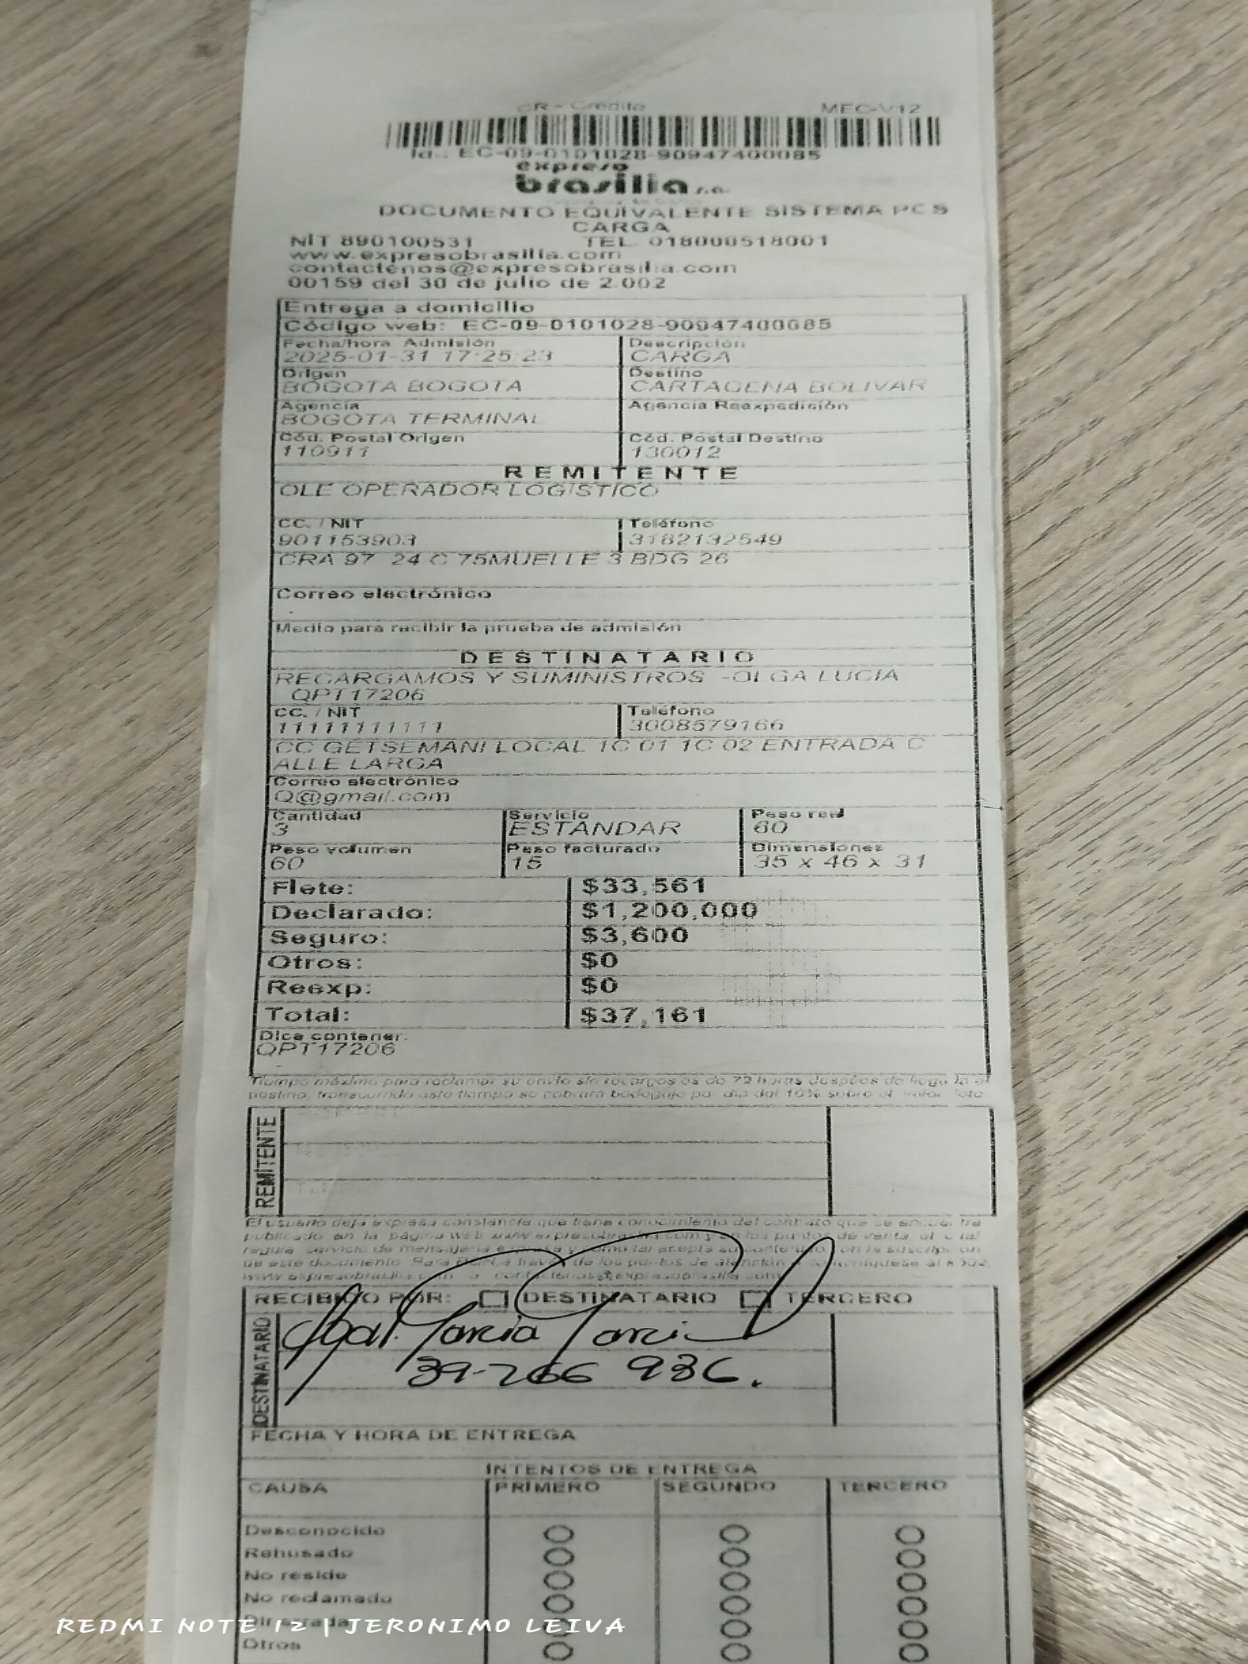 CR - Crédito MEC-V12
Id.: EC-09-0101028-90947400085
expreso
brasilia s.a.
DOCUMENTO EQUIVALENTE SISTEMA POS
CARGA
NIT 890100531 TEL 018000518001
www.expresobrasilia.com
contactenos@expresobrasilia.com
00159 del 30 de julio de 2.002
Entrega a domicilio
Código web: EC-09-0101028-90947400085
Fecha/hora Admisión Descripción
2025-01-31 17:25:23 CARGA
Origen Destino
BOGOTA BOGOTA CARTAGENA BOLIVAR
Agencia Agencia Reexpedición
BOGOTA TERMINAL
Cód. Postal Origen Cód. Postal Destino
110911 130012
REMITENTE
OLE OPERADOR LOGISTICO
CC. / NIT Teléfono
901153903 3182132549
CRA 97 24 C 75MUELLE 3 BDG 26
Correo electrónico
.
Medio para recibir la prueba de admisión
DESTINATARIO
RECARGAMOS Y SUMINISTROS -OLGA LUCIA
QPT17206
CC. / NIT Teléfono
11111111111 3008579166
CC GETSEMANI LOCAL 1C 01 1C 02 ENTRADA C
ALLE LARGA
Correo electrónico
Q@gmail.com
Cantidad Servicio Peso real
3 ESTANDAR 60
Peso volumen Peso facturado Dimensiones
60 15 35 x 46 x 31
Flete: $33,561
Declarado: $1,200,000
Seguro: $3,600
Otros: $0
Reexp: $0
Total: $37,161
Dice contener:
QPT17206
Tiempo máximo para reclamar su envío sin recargos es de 72 horas después de llegada al
destino, transcurrido este tiempo se cobrará bodegaje por día del 10% sobre el valor flete
REMITENTE
El usuario deja expresa constancia que tiene conocimiento del contrato que se encuentra
publicado en la página web www.expresobrasilia.com y en los puntos de venta, el cual
regula servicio de mensajería expresa y como tal acepta su contenido con la suscripción
de este documento. Para PQR a través de los puntos de atención
www.expresobrasilia.com o contactenos@expresobrasilia.com
RECIBIDO POR: DESTINATARIO TERCERO
DESTINATARIO
Garcia Garci
39-266 936.
FECHA Y HORA DE ENTREGA
INTENTOS DE ENTREGA
CAUSA PRIMERO SEGUNDO TERCERO
Desconocido
Rehusado
No reside
No reclamado
Dir errada
Otros
REDMI NOTE 12 | JERONIMO LEIVA